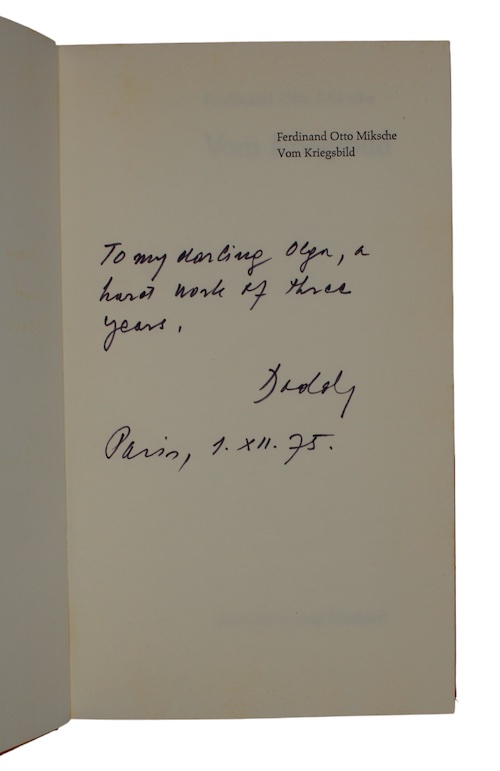 Ferdinand Otto Miksche
Vom Kriegsbild
To my darling Olga, a
hard work of three
years.
Daddy
Paris, 1. XII. 75.